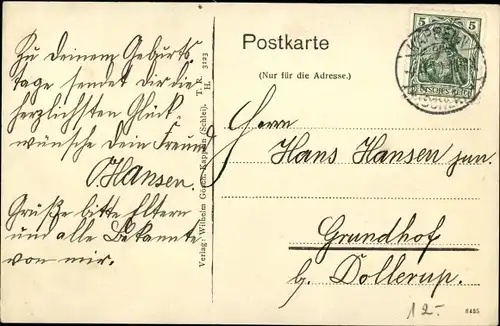 Zu deinem Geburts
tage sendet dir die
herzlichsten Glück
wünsche dein Freund
O. Hansen.
Grüße bitte Eltern
und alle Bekannte
von mir.
Verlag: Wilhelm Görck, Kappeln (Schlei). T. R. 3123
H.
Postkarte
(Nur für die Adresse.)
5 5
DEUTSCHES REICH
KAPPELN
Herrn
Hans Hansen jun.
Grundhof
b. Dollerup.
12.-
8455